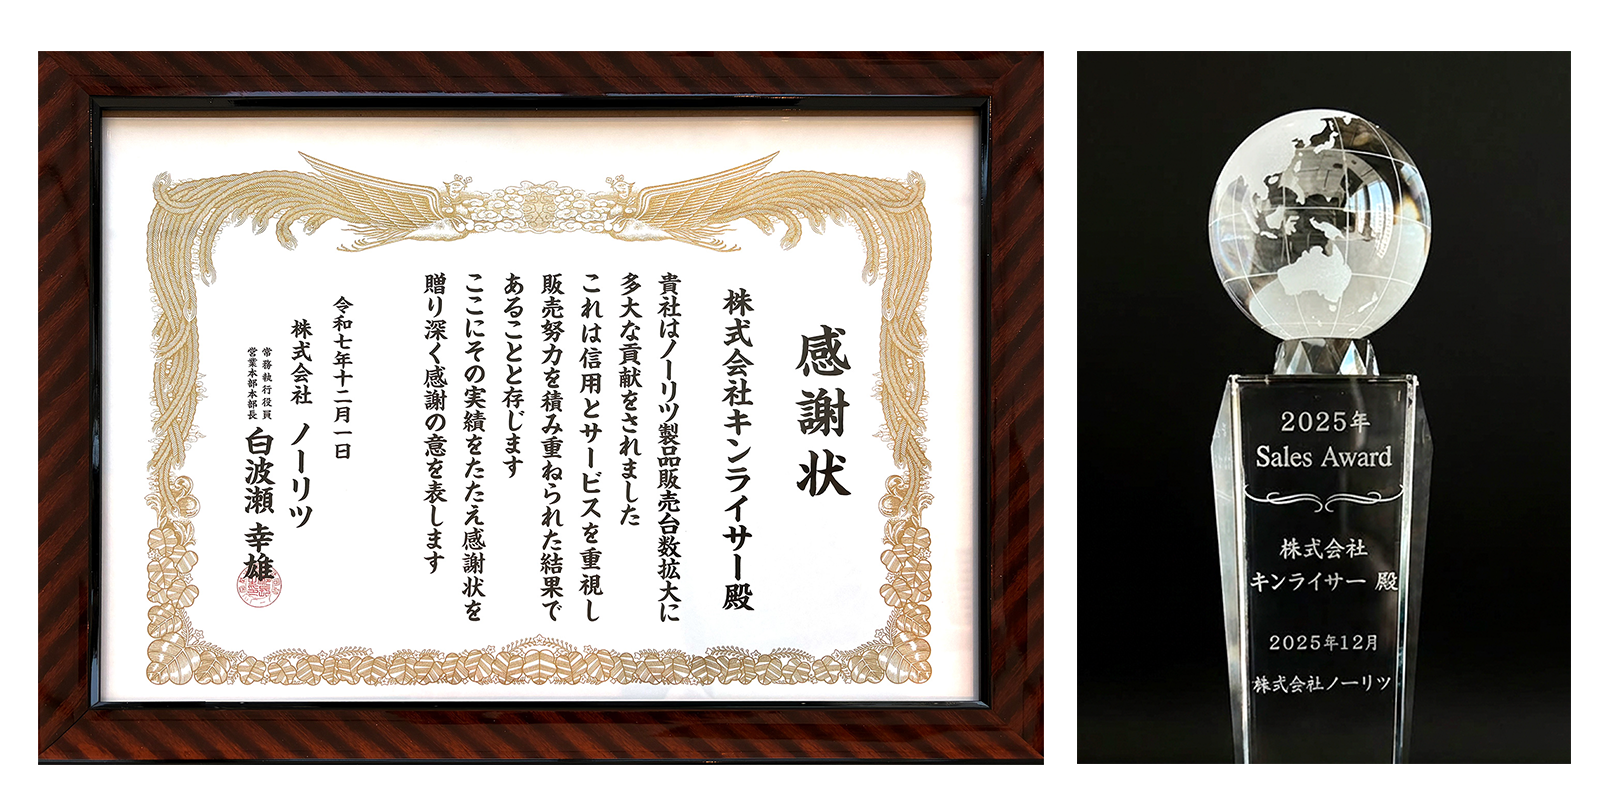 感謝状
株式会社キンライサー殿
貴社はノーリツ製品販売台数拡大に
多大な貢献をされました
これは信用とサービスを重視し
販売努力を積み重ねられた結果で
あることと存じます
ここにその実績をたたえ感謝状を
贈り深く感謝の意を表します
令和七年十二月一日
株式会社 ノーリツ
常務執行役員
営業本部本部長
白波瀬 幸雄
2025年
Sales Award
株式会社
キンライサー 殿
2025年12月
株式会社ノーリツ